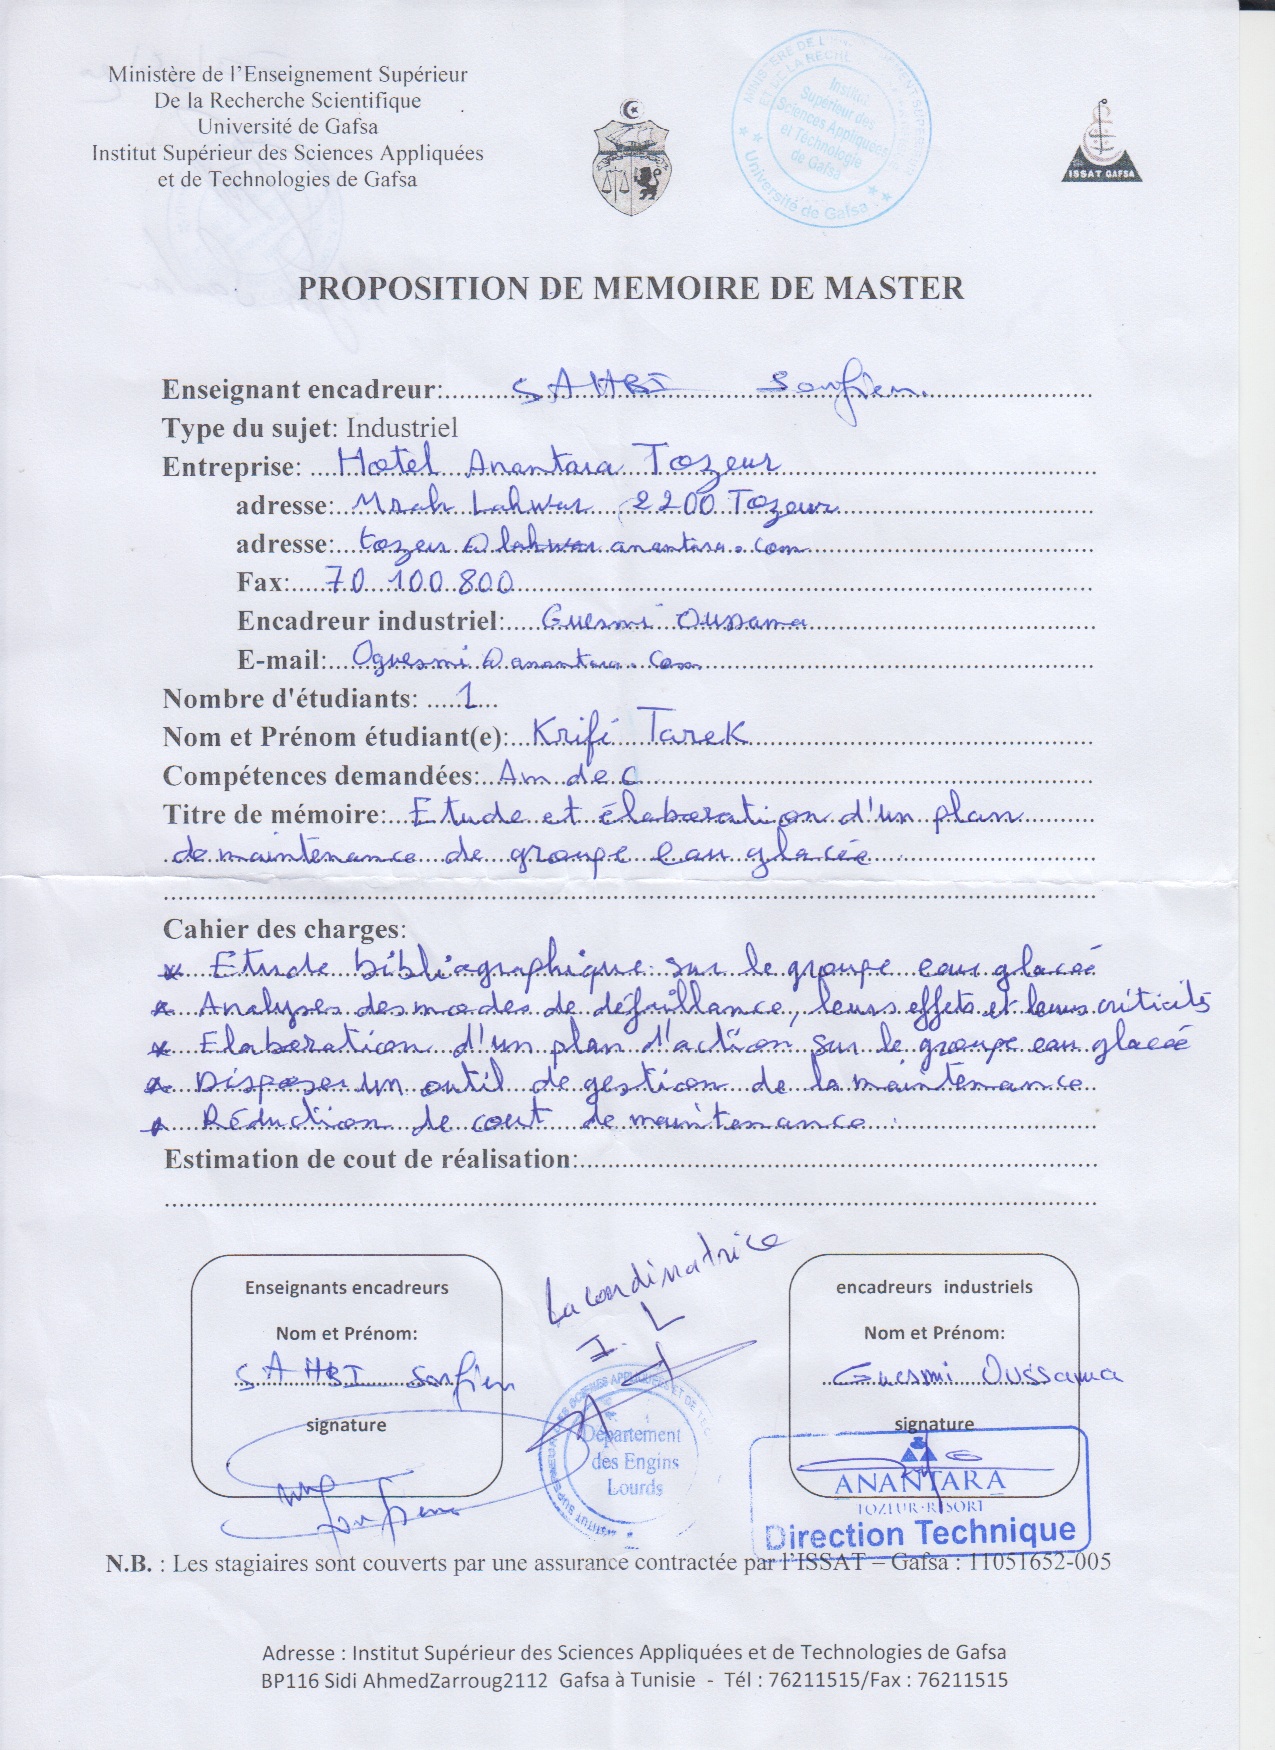 Ministère de l'Enseignement Supérieur
De la Recherche Scientifique
Université de Gafsa
Institut Supérieur des Sciences Appliquées
et de Technologies de Gafsa
Institut
Supérieur des
Sciences Appliquées
et Téchnologie
de Gafsa
Université de Gafsa
ISSAT GAFSA
PROPOSITION DE MEMOIRE DE MASTER
Enseignant encadreur: SAHBI Soufien
Type du sujet: Industriel
Entreprise: Hotel Anantara Tozeur
adresse: Mrah Lahwar 2200 Tozeur
adresse: tozeur@anantara.com
Fax: 70 100 800
Encadreur industriel: Guesmi Oussama
E-mail: Oguesmi@anantara.com
Nombre d'étudiants: 1
Nom et Prénom étudiant(e): Krifi Tarek
Compétences demandées: Am de c
Titre de mémoire: Etude et élaboration d'un plan
de maintenance de groupe eau glacée
Cahier des charges:
* Etude bibliographique sur le groupe eau glacée
* Analyses des modes de défaillance, leurs effets et leurs criticités
* Elaboration d'un plan d'action sur le groupe eau glacée
* Disposer un outil de gestion de la maintenance
* Réduction de cout de maintenance.
Estimation de cout de réalisation:
La cordinatrice
I. L
Enseignants encadreurs
Nom et Prénom:
SAHBI Soufien
signature
Département
des Engins
Lourds
encadreurs industriels
Nom et Prénom:
Guesmi Oussama
signature
ANANTARA
TOZEUR·RESORT
Direction Technique
N.B. : Les stagiaires sont couverts par une assurance contractée par l'ISSAT – Gafsa : 11051652-005
Adresse : Institut Supérieur des Sciences Appliquées et de Technologies de Gafsa
BP116 Sidi AhmedZarroug2112 Gafsa à Tunisie - Tél : 76211515/Fax : 76211515